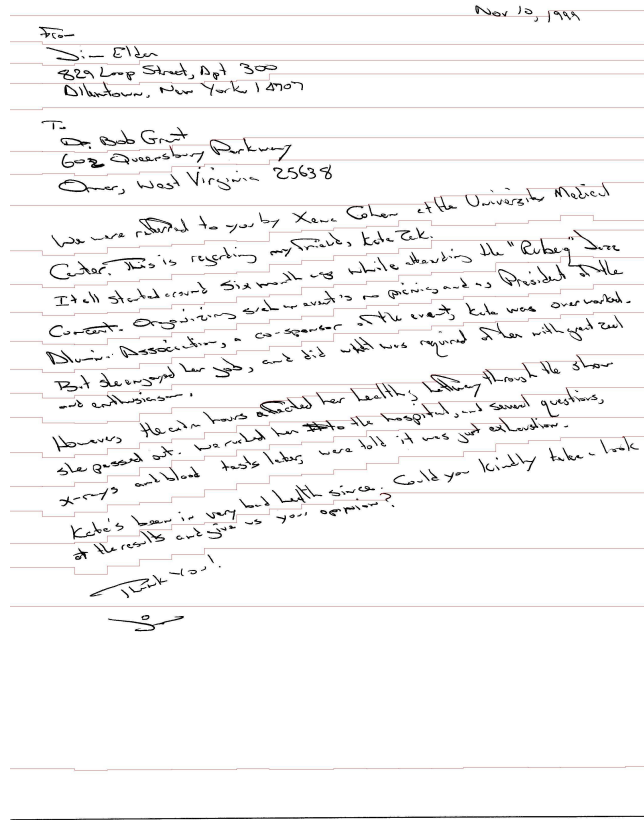 Nov 10, 1999
From
Jim Elder
829 Loop Street, Apt 300
Allentown, New York 14707
To
Dr. Bob Grant
602 Queensbury Parkway
Omar, West Virginia 25638
We were referred to you by Xena Cohen at the University Medical
Center. This is regarding my friend, Kate Zack.
It all started around six months ago while attending the "Rubeq" Jazz
Concert. Organizing such an event is no picnic, and as President of the
Alumni Association, a co-sponsor of the event, Kate was overworked.
But she enjoyed her job, and did what was required of her with great zeal
and enthusiasm.
However, the extra hours affected her health; halfway through the show
she passed out. We rushed her to the hospital, and several questions,
x-rays and blood tests later, were told it was just exhaustion.
Kate's been in very bad health since. Could you kindly take a look
at the results and give us your opinion?
Thank You!
Jim